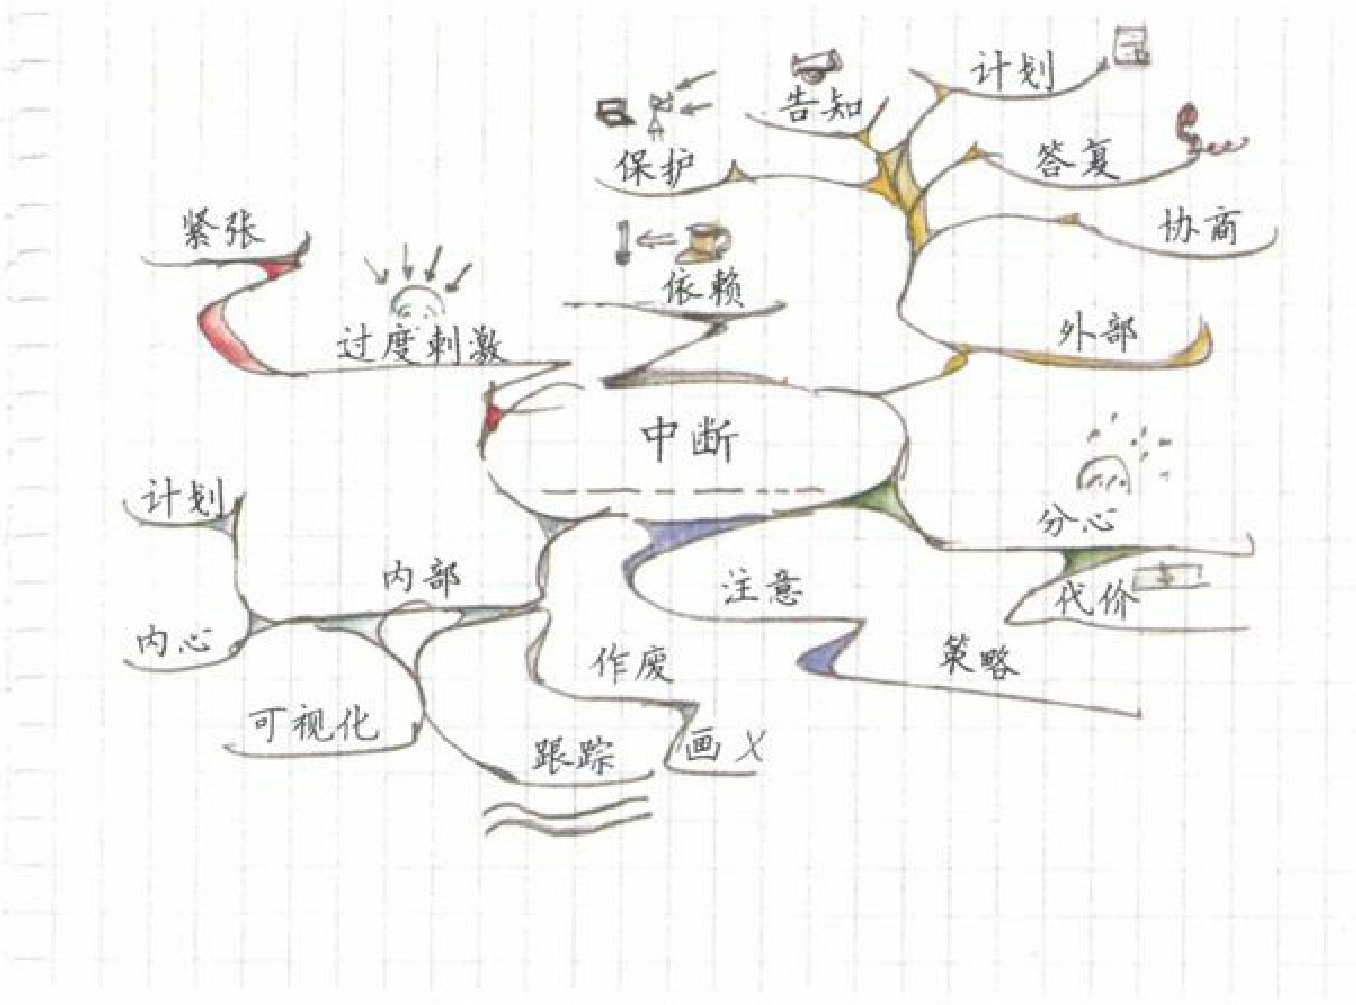 计划
告知
答复
保护
协商
紧张
依赖
外部
过度刺激
中断
计划
分心
内部
注意
代价
内心
作废
策略
可视化
跟踪
画 X